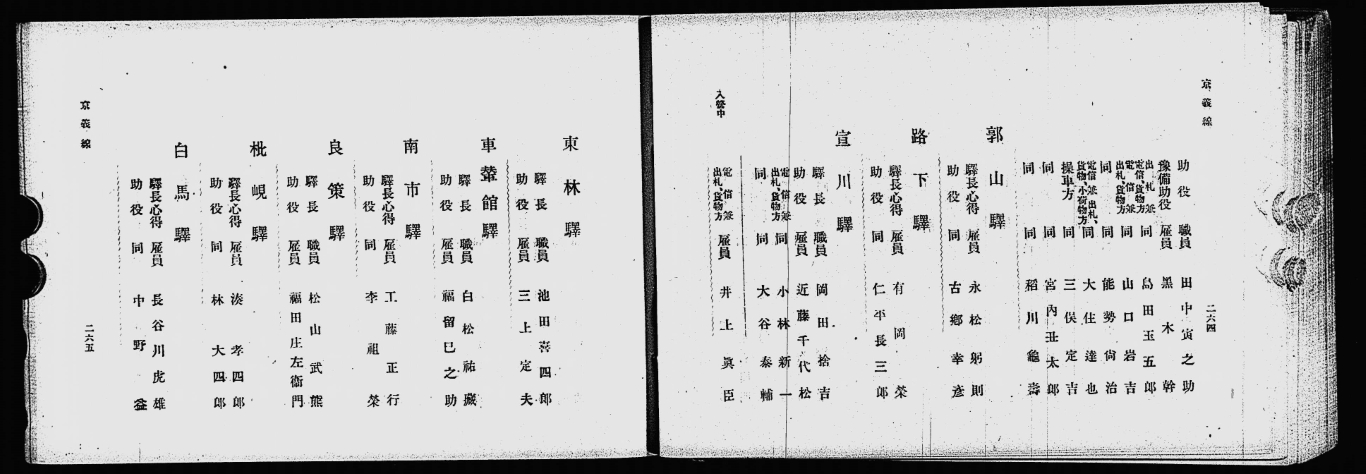 京義線
二六四
助役 職員 田中寅之助
豫備助役 雇員 黑木幹
出札兼電信、貨物方 同 島田玉五郎
電信兼出札、貨物方 同 山口岩吉
同 同 能勢尙治
電信兼出札、貨物、小荷物方 同 大住達也
操車方 同 三俣定吉
同 同 宮內丑太郎
同 同 稻川龜壽
郭山驛
驛長心得 雇員 永松躬則
助役 同 古鄕幸彥
路下驛
驛長心得 雇員 有岡榮
助役 同 仁平長三郎
宣川驛
驛長 職員 岡田捨吉
助役 雇員 近藤千代松
電信兼出札、貨物方 同 小林新一
同 同 大谷泰輔
入營中
電信兼出札、貨物方 雇員 井上眞臣
東林驛
驛長 職員 池田喜四郎
助役 雇員 三上定夫
車輦館驛
驛長 職員 白松祐巖
助役 雇員 福留巳之助
南市驛
驛長心得 雇員 工藤正行
助役 同 李祖榮
良策驛
驛長 職員 松山武熊
助役 雇員 福田庄左衞門
枇峴驛
驛長心得 雇員 湊孝四郎
助役 同 林大四郎
白馬驛
驛長心得 雇員 長谷川虎雄
助役 同 中野益
京義線
二六五